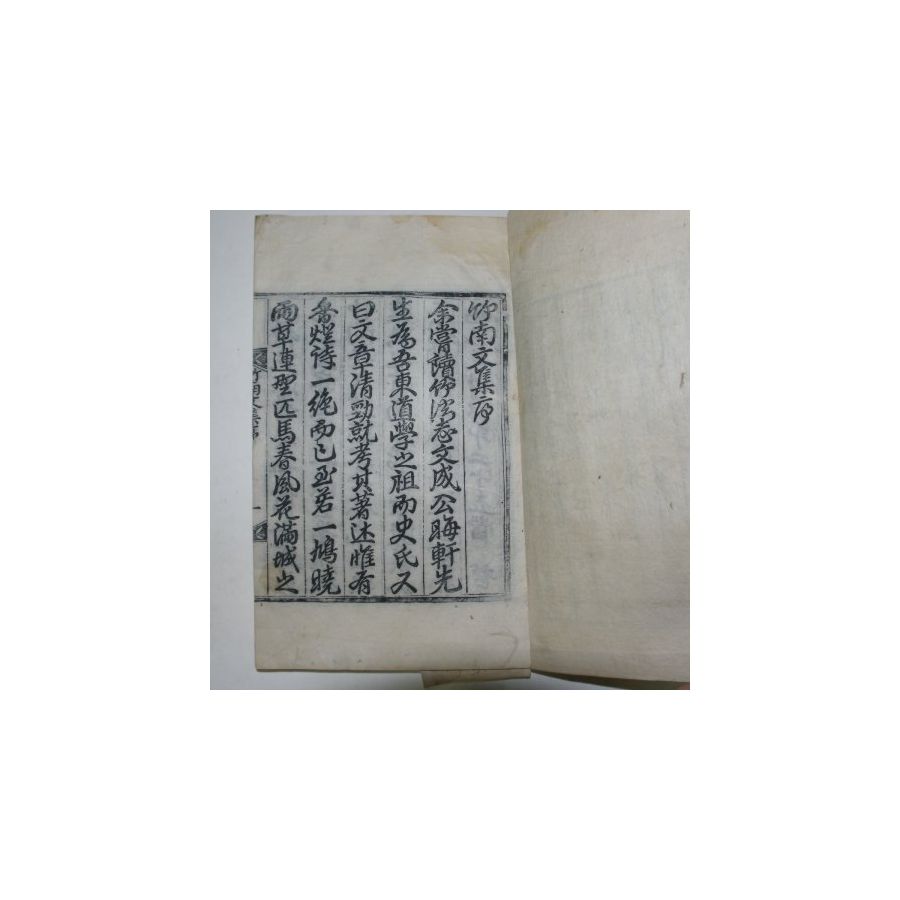 竹南文集序
余嘗讀竹溪志文成公晦軒先
生為吾東道學之祖而史氏又
曰文章清勁就考其著述惟有
香燈詩一絶而已至若一鳩曉
雨草連野匹馬春風花滿城之